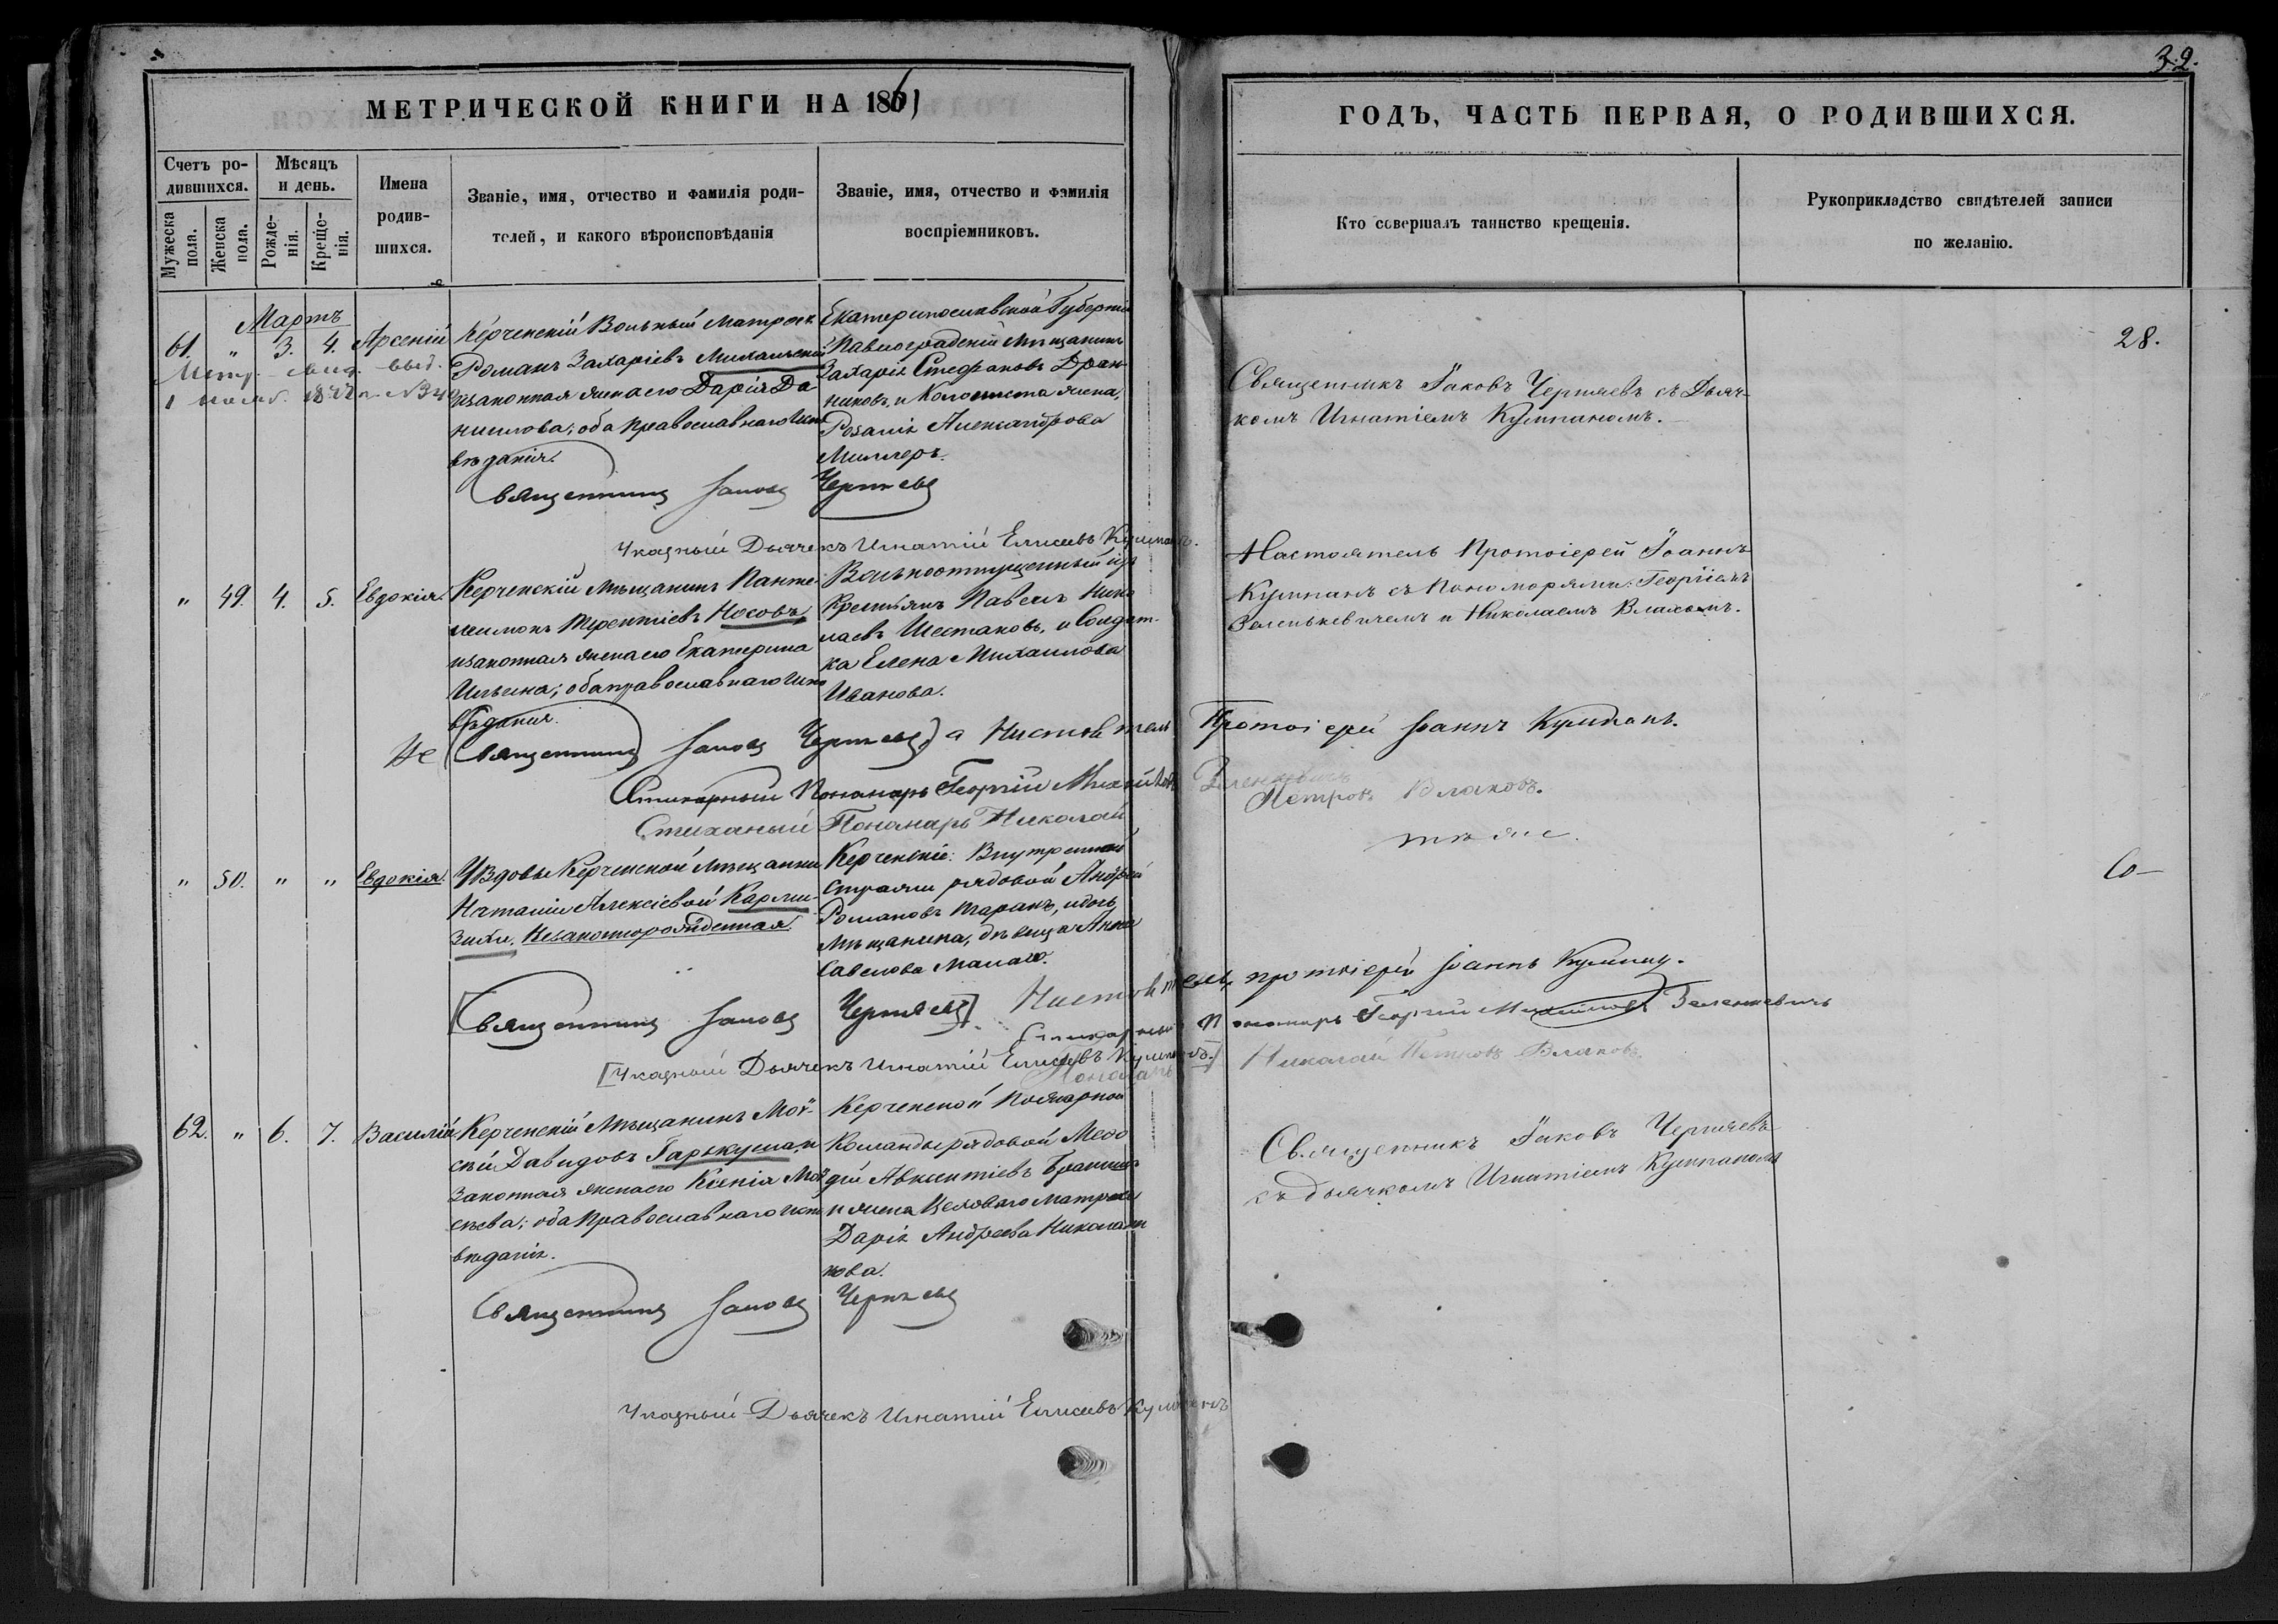 32.
МЕТРИЧЕСКОЙ КНИГИ НА 1861
ГОДЪ, ЧАСТЬ ПЕРВАЯ, О РОДИВШИХСЯ.
Счетъ ро-
дившихся.
Мужеска
пола.
Женска
пола.
Мѣсяцъ
и день.
Рожде-
нія.
Креще-
нія.
Имена
родив-
шихся.
Званіе, имя, отчество и фамилія роди-
телей, и какого вѣроисповѣданія
Званіе, имя, отчество и фамилія
воспріемниковъ.
Кто совершалъ таинство крещенія.
Рукоприкладство свидѣтелей записи
по желанію.
Мартъ
61. " 3. 4. Арсеній
Метр. выд.
1877
Керченскій Вольный Матросъ
Романъ Захаріевъ Михальскій
и законная жена его Дарія Да
ниилова; оба православнаго испо
вѣданія.
Екатеринославской Губерніи
Павлоградскій Мѣщанинъ
Захарія Стефановъ Дран-
никовъ, и Колониста жена,
Розалія Александрова
Миллеръ.
Священникъ Іаковъ Черняевъ съ Дьяч-
комъ Игнатіемъ Кумпаномъ.
28.
Священникъ Іаковъ Черняевъ
Указный Дьячекъ Игнатій Елисеевъ Кумпанъ.
" 49. 4. 5. Евдокія.
Керченскій Мѣщанинъ Панте-
леимонъ Терентіевъ Носовъ,
и законная жена его Екатерина
Ильина; оба православнаго испо
вѣданія.
Вольноотпущенный изъ
Крестьянъ Павелъ Нико
лаевъ Шестаковъ, и Солдат-
ка Елена Михаилова
Иванова.
Настоятель Протоіерей Іоаннъ
Кумпанъ съ Пономарями: Георгіемъ
Зеленкевичемъ и Николаемъ Влаховъ.
Не (Священникъ Іаковъ Черняевъ) а Настоятель Протоіерей Іоаннъ Кумпанъ.
Стихарный Пономарь Георгій Михайловъ Зеленкевичъ
Стиханый Понамарь Николай Петровъ Влаховъ.
" 50. " " Евдокія.
У Вдовы Керченской Мѣщанки
Наталіи Алексіевой Карми-
зихи, Незаконнорожденная.
Керченскіе: Внутренней
Стражи рядовой Андрей
Романовъ Таранъ, и дочь
Мѣщанина, дѣвица Анна
Савелова
тѣ же.
[Священникъ Іаковъ Черняевъ]. Настоятель, протоіерей Іоаннъ Кумпанъ.
Стихарный Пономарь Георгій Михаиловъ Зеленкевичъ
[Указный Дьячекъ Игнатій Елисеевъ Кумпанъ.]
Понамарь Николай Петровъ Влаховъ.
62. " 6. 7. Василій
Керченскій Мѣщанинъ Мой-
сей Давидовъ Гаркуша, и
законная жена его Ксенія Мой
сѣева; оба Православнаго испо
вѣданія.
Керченской Пожарной
Команды рядовой Меѳо
дій Авксентіевъ
и жена Целоваго Матроса
Дарія Андреева Николаен
кова.
Священникъ Іаковъ Черняевъ
съ дьячкомъ Игнатіемъ Кумпаномъ
Священникъ Іаковъ Черняевъ
Указный Дьячекъ Игнатій Елисеевъ Кумпанъ